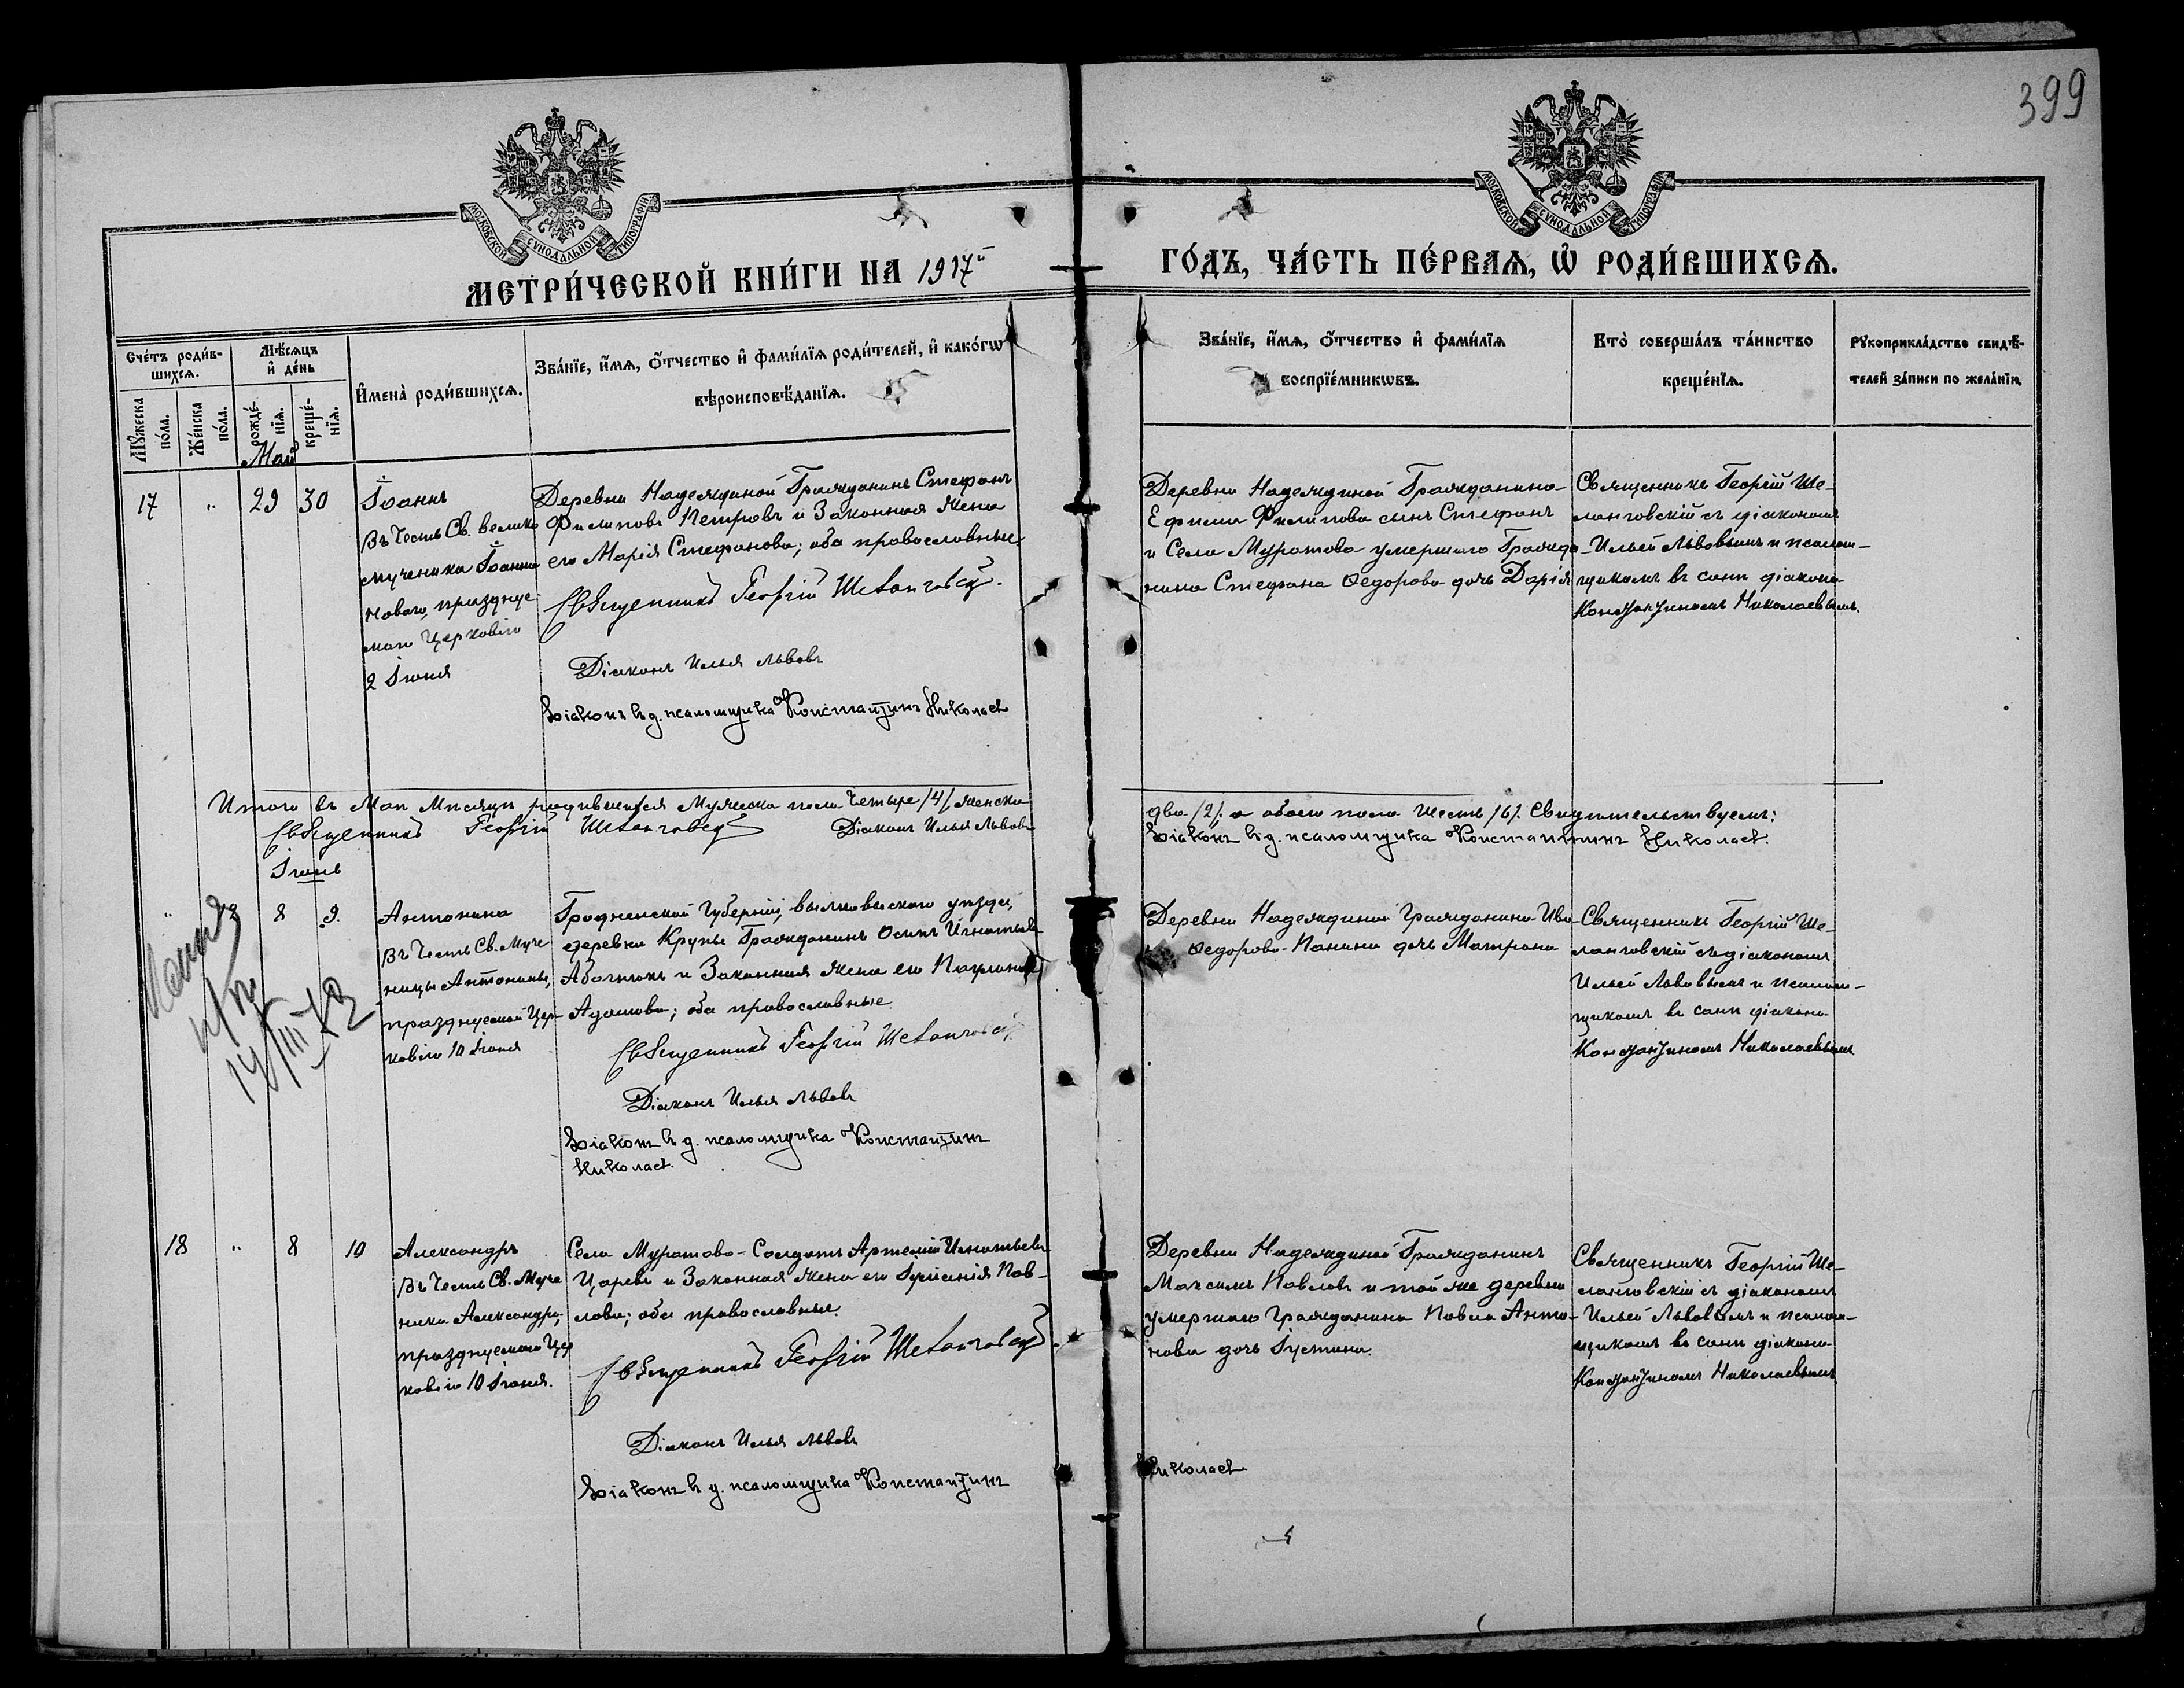 399
МОСКОВСКОЙ СУНОДАЛЬНОЙ ТИПОГРАФІИ
МОСКОВСКОЙ СУНОДАЛЬНОЙ ТИПОГРАФІИ
МЕТРИ́ЧЕСКОЙ КНИ́ГИ НА 1917й
ГО́ДЪ, ЧА́СТЬ ПЕ́РВАѦ, Ѡ РОДИ́ВШИХСѦ.
Сче́тъ роди́в-
шихсѧ.
Мѣ́сѧцъ
и҆ де́нь
Мꙋ́жеска
по́ла.
Же́нска
по́ла.
рожде́-
нїѧ.
креще́-
нїѧ.
И҆мена̀ роди́вшихсѧ.
Зва́нїе, и҆́мѧ, ѻ҆́тчество и҆ фами́лїѧ роди́телей, и҆ како́гѡ
вѣроисповѣ́данїѧ.
Зва́нїе, и҆́мѧ, ѻ҆́тчество и҆ фами́лїѧ
воспрїе́мникѡвъ.
Кто̀ соверша́лъ та́инство
креще́нїѧ.
Рꙋкоприкла́дство свидѣ́-
телей за́писи по жела́нїю.
Май
17 " 29 30
Іоаннъ
Въ Честь Св. велико
мученика Іоанна
новаго, празднуе
маго Церковію
2 Іюня
Деревни Надеждиной Гражданинъ Стефанъ
Филиповъ Петровъ и Законная жена
его Марія Стефанова; оба православные
Священникъ Георгій Шеланговскій.
Діаконъ Илья Львовъ
Діаконъ в д. псаломщика Константинъ Николаев
Деревни Надеждиной Гражданина
Ефима Филипова сынъ Стефанъ
и Села Муратова умершаго Гражда-
нина Стефана Ѳедорова дочь Дарія
Священникъ Георгій Ше-
ланговскій съ діакономъ
Ильей Львовымъ и псалом-
щикомъ въ санѣ діакона
Константиномъ Николаевымъ.
Итого въ Маѣ Мѣсяцѣ родившихся Мужеска пола Четыре /4/, женска
два /2/, а обоего пола шесть /6/. Свидѣтельствуемъ:
Священникъ Георгій Шеланговскій Діаконъ Илья Львовъ
Діаконъ в д. псаломщика Константинъ Николаев.
Іюнь
" 8 9.
14/III
Антонина
Въ Честь Св. Муче
ницы Антонины,
празднуемой Цер-
ковію 10 Іюня
Гродненской Губерніи, уѣзда,
деревни Крупы Гражданинъ Осипъ Игнатьев
и Законная жена его
Адамова; оба православные
Священникъ Георгій Шеланговскій
Діаконъ Илья Львовъ
Діаконъ в д. псаломщика Константинъ
Николаев.
Деревни Надеждиной Гражданина Ива-
Ѳедорова Панина дочь Матрона
Священникъ Георгій Ше-
ланговскій съ діакономъ
Ильей Львовымъ и псалом-
щикомъ въ санѣ діакона
Константиномъ Николаевымъ
18 " 8 10
Александръ
Въ Честь Св. Муче
ника Александра,
празднуемаго Цер
ковію 10 Іюня.
Села Муратова Солдатъ Артемій Игнатьевъ
Царевъ и Законная жена его Іуліанія Пав-
лова; оба православные.
Священникъ Георгій Шеланговскій
Діаконъ Илья Львовъ
Діаконъ в д. псаломщика Константинъ
Николаев
Деревни Надеждиной Гражданинъ
Максимъ Павловъ и той же деревни
умершаго Гражданина Павла Анто-
нова дочь Іустина.
Священникъ Георгій Ше-
ланговскій съ діакономъ
Ильей Львовымъ и псалом-
щикомъ въ санѣ діакона
Константиномъ Николаевымъ